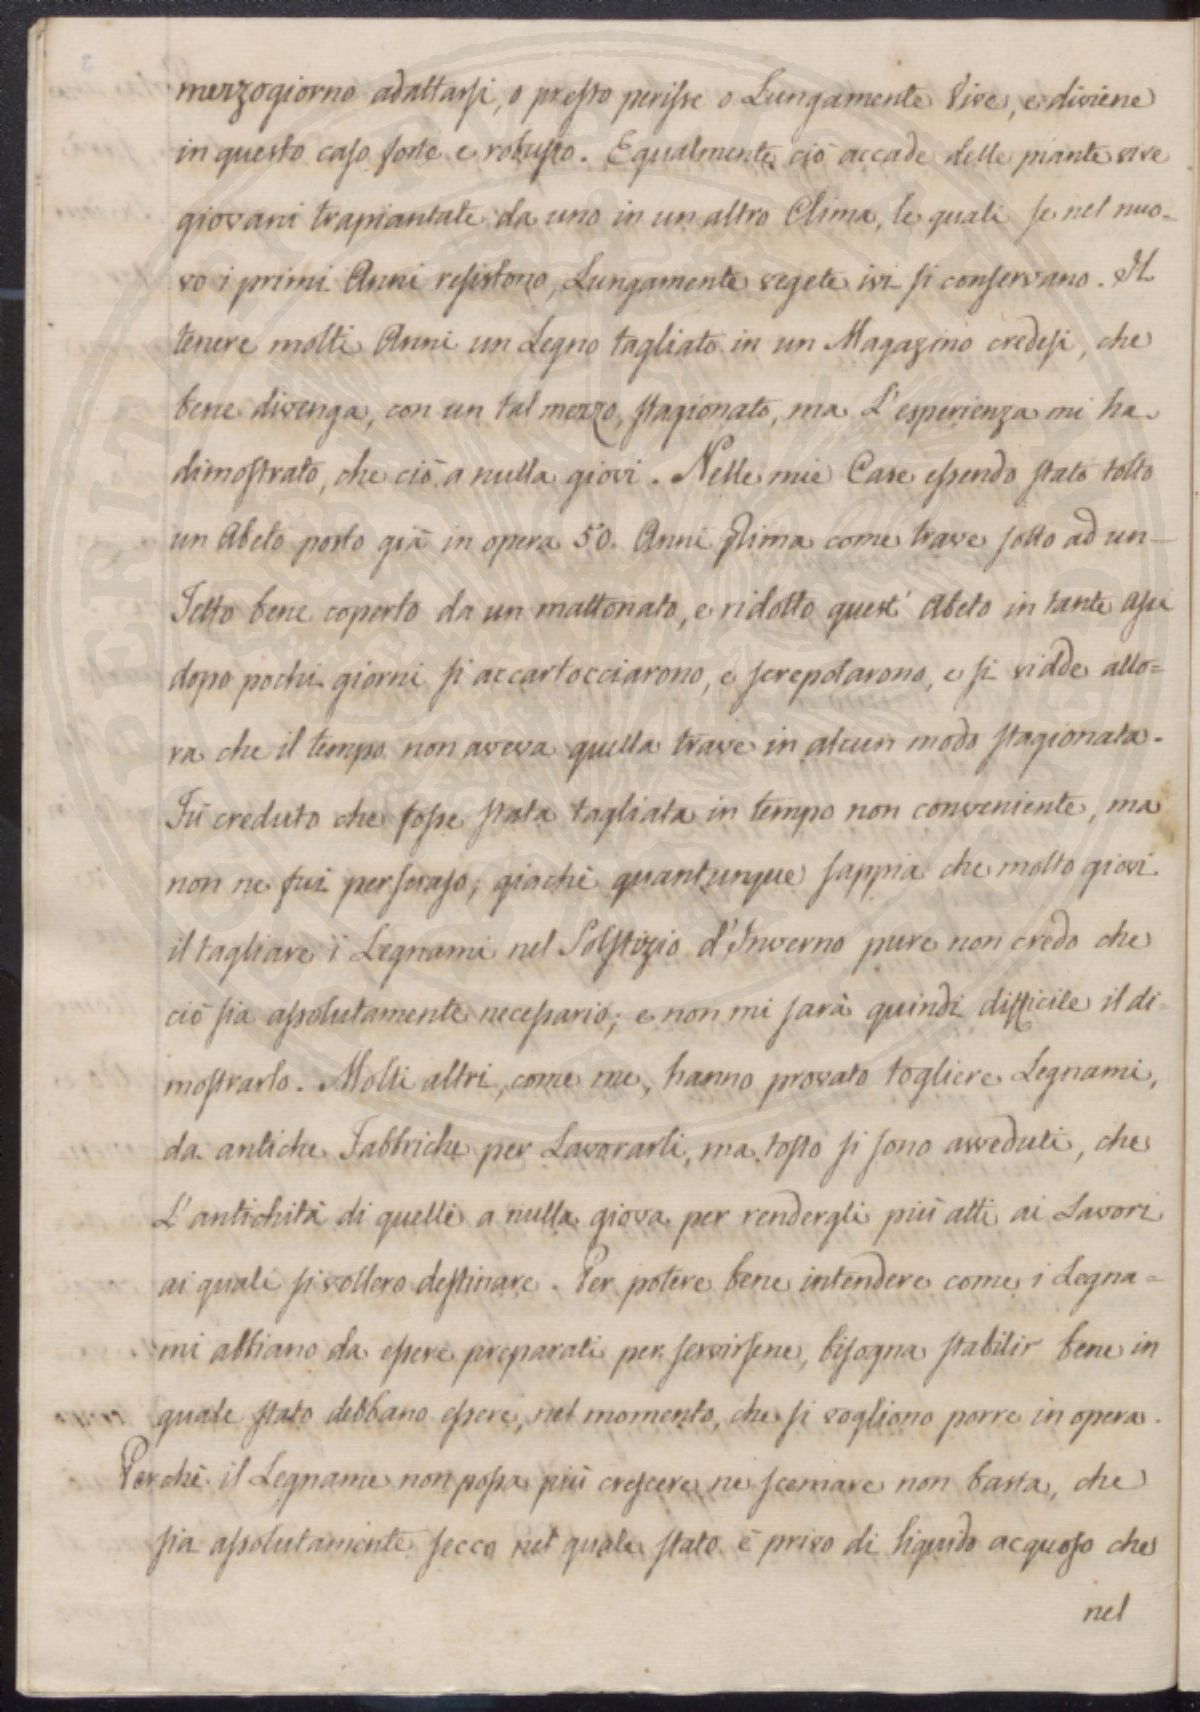 mezzogiorno adattarsi, o presto perisse o Lungamente Vive, e diviene
in questo caso forte e robusto. Equalmente ciò accade delle piante vive
giovani trapiantate da uno in un altro Clima, le quali se nel nuo=
vo i primi Anni resistono, Lungamente vegete ivi si conservano. Il
tenere molti Anni un Legno tagliato in un Magazino credesi, che
bene divenga, con un tal mezzo, stagionato, ma L'esperienza mi ha
dimostrato, che ciò a nulla giovi. Nelle mie Case essendo stato tolto
un Abeto posto già in opera 50. Anni Prima come trave sotto ad un
Tetto bene coperto da un mattonato, e ridotto quest' Abeto in tante asse
dopo pochi giorni si accartocciarono, e screpolarono, e si vidde allo=
ra che il tempo non aveva quella trave in alcun modo stagionata.
Fù creduto che fosse stata tagliata in tempo non conveniente, ma
non ne fui persuaso; giachè quantunque sappia che molto giovi
il tagliare i Legnami nel Solstizio d'Inverno pure non credo che
ciò sia assolutamente necessario; e non mi sarà quindi difficile il di=
mostrarlo. Molti altri, come me, hanno provato togliere Legnami,
da antiche Fabbriche per Lavorarli, ma tosto si sono avveduti, che
L'antichità di quelli a nulla giova per rendergli più atti ai Lavori
ai quali si vollero destinare. Per potere bene intendere come i Legna=
mi abbiano da essere preparati per servirsene, bisogna stabilir bene in
quale stato debbano essere, nel momento, che si vogliono porre in opera.
Perchè il Legname non possa più crescere, ne scemare non basta, che
sia assolutamente secco nel quale stato è privo di liquido acquoso che
nel